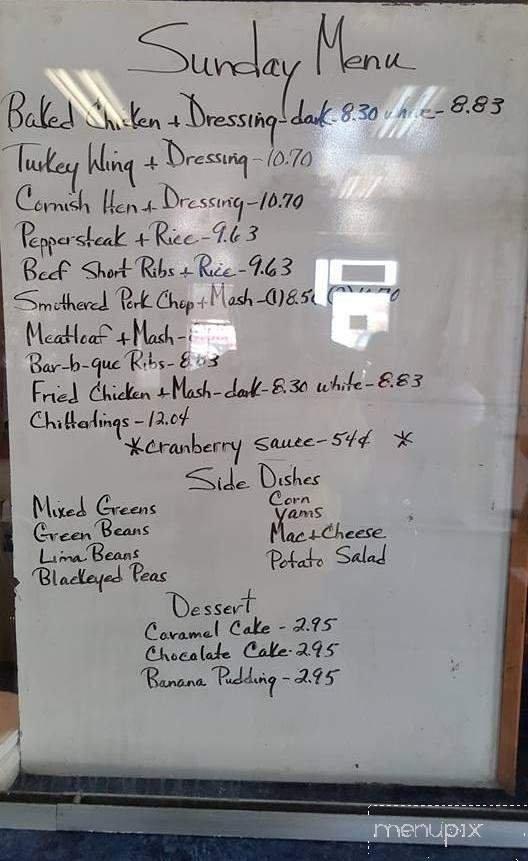 Sunday Menu
Baked Chicken + Dressing-dark-8.30 white-8.83
Turkey Wing + Dressing-10.70
Cornish Hen + Dressing-10.70
Peppersteak + Rice-9.63
Beef Short Ribs + Rice-9.63
Smothered Pork Chop + Mash-(1)8.56
Meatloaf + Mash-
Bar-b-que Ribs-
Fried Chicken + Mash-dark-8.30 white-8.83
Chitterlings-12.04
*Cranberry sauce-54¢ *
Side Dishes
Mixed Greens
Green Beans
Lima Beans
Blackeyed Peas
Corn
Yams
Mac+Cheese
Potato Salad
Dessert
Caramel Cake - 2.95
Chocolate Cake-2.95
Banana Pudding-2.95
menupix